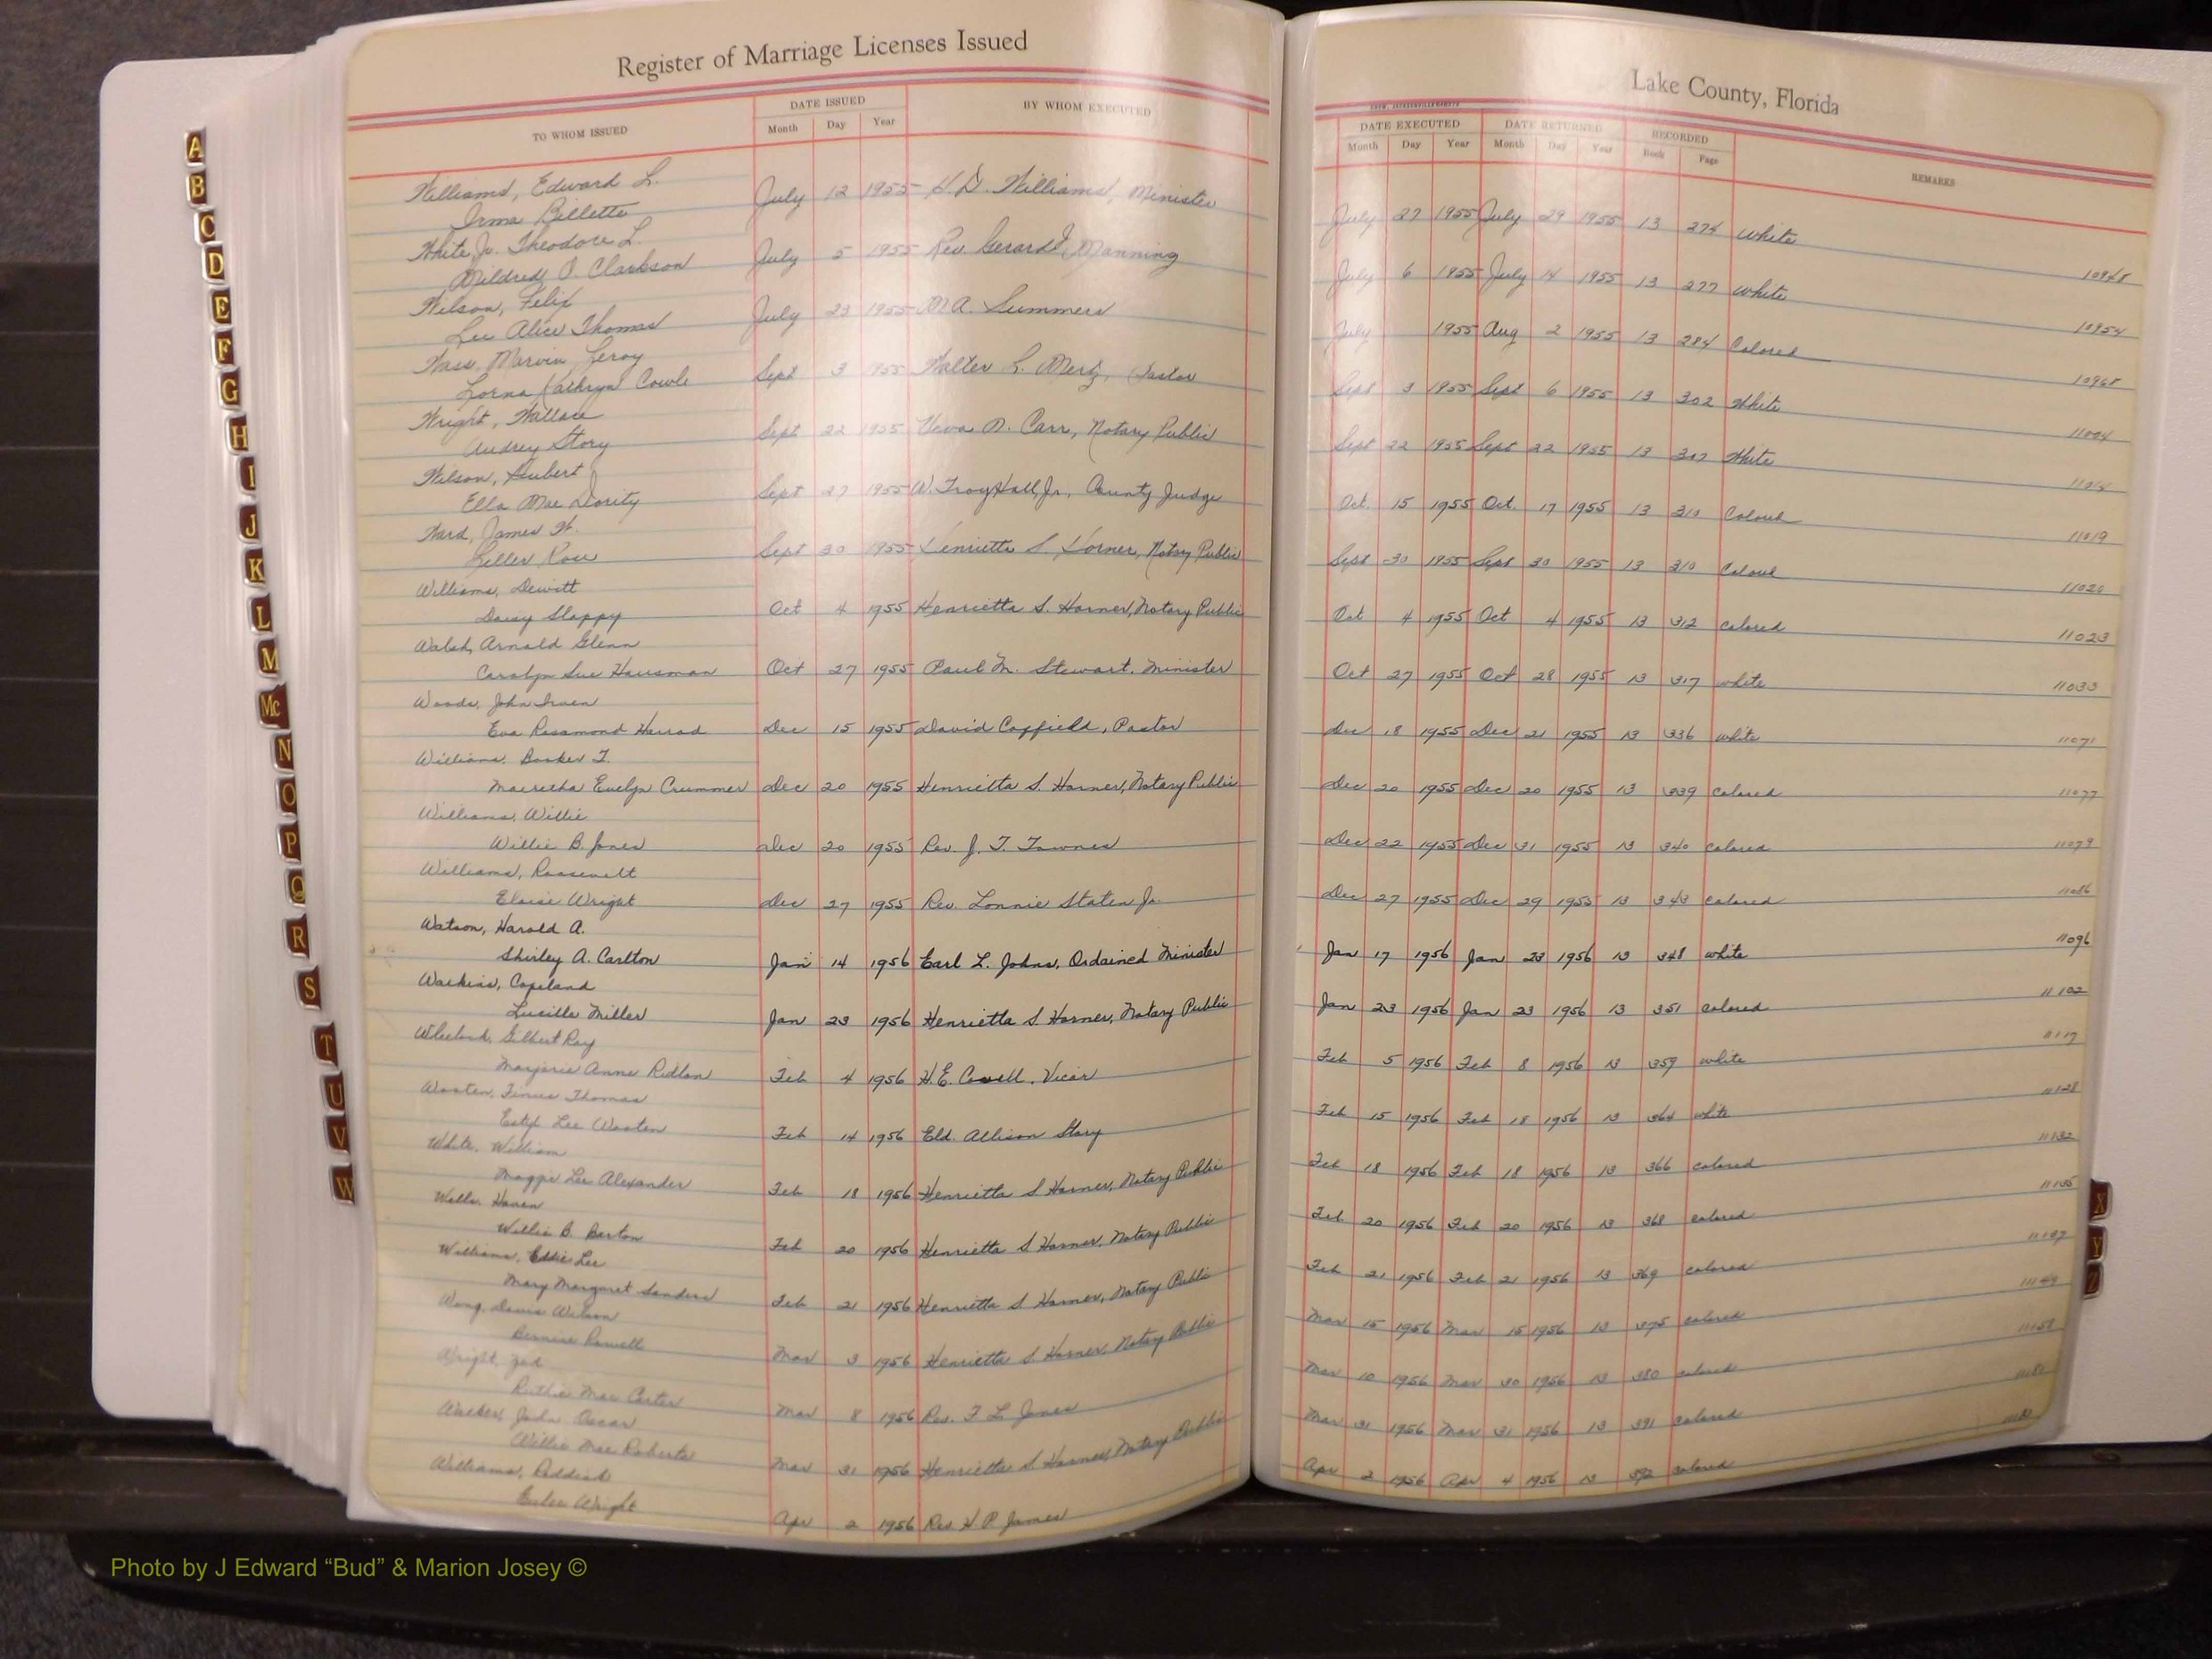 Register of Marriage Licenses Issued
Lake County, Florida
TO WHOM ISSUED
DATE ISSUED
Month Day Year
BY WHOM EXECUTED
DATE EXECUTED
Month Day Year
DATE RETURNED
Month Day Year
RECORDED
Book Page
REMARKS
Williams, Edward L.
Irma Billette July 12 1955 H.D. Williams, Minister July 27 1955 July 29 1955 13 274 White
White, Jr. Theodore L. 10948
Mildred Clarkson July 5 1955 Rev Gerard Manning July 6 1955 July 14 1955 13 277 White
Wilson, Felix 10954
Lee Alice Thomas July 23 1955 M.A. Summers July 1955 Aug 2 1955 13 284 Colored
Wass, Marvin Leroy 10968
Lorna Kathryn Cowle Sept 3 1955 Walter L. Mertz, Pastor Sept 3 1955 Sept 6 1955 13 302 White
Wright, Wallace 11004
Audrey Story Sept 22 1955 Neva N. Carr, Notary Public Sept 22 1955 Sept 22 1955 13 307 White
Wilson, Hubert
Ella Mae Dority Sept 27 1955 W. Troy Hall, Jr., County Judge Oct. 15 1955 Oct. 17 1955 13 Colored
Ward, James W. 11019
Rose Sept 30 1955 Henrietta S. Horner, Notary Public Sept 30 1955 Sept 30 1955 13 310 Colored
Williams, Dewitt
Daisy Slappy Oct 4 1955 Henrietta S. Horner, Notary Public Oct 4 1955 Oct 4 1955 13 312 colored
Walsh, Arnold Glenn 11023
Carolyn Sue Hausman Oct 27 1955 Paul M. Stewart, Minister Oct 27 1955 Oct 28 1955 13 317 white
Woods, John 11033
Eva Rosamond Harrod Dec 15 1955 David Coffield, Pastor Dec 18 1955 Dec 21 1955 13 336 white
Williams, Booker T. 11071
Evelyn Crummer Dec 20 1955 Henrietta S. Horner, Notary Public Dec 20 1955 Dec 20 1955 13 339 colored
Williams, Willie 11077
Willie B. Jones Dec 20 1955 Rev. J. T. Townes Dec 22 1955 Dec 31 1955 13 340 colored
Williams, Roosevelt 11079
Eloise Wright Dec 27 1955 Rev. Lonnie Staten Jr. Dec 27 1955 Dec 29 1955 13 343 colored
Watson, Harold A. 11086
Shirley A. Carlton Jan 14 1956 Earl L. Johns, Ordained Minister Jan 17 1956 Jan 23 1956 13 348 white
Watkins, Copeland 11096
Lucille Miller Jan 23 1956 Henrietta S Horner, Notary Public Jan 23 1956 Jan 23 1956 13 351 colored
Wheelock, Gilbert Ray 11102
Marjorie Anne Ridlon Feb 4 1956 H.E. Cowell, Vicar Feb 5 1956 Feb 8 1956 13 359 white
Wooten, Thomas 11117
Lee Wooten Feb 14 1956 Eld. Allison Story Feb 15 1956 Feb 18 1956 13 364 white
White, William 11128
Maggie Lee Alexander Feb 18 1956 Henrietta S Horner, Notary Public Feb 18 1956 Feb 18 1956 13 366 colored
Haven 11132
Willie B. Barton Feb 20 1956 Henrietta S Horner, Notary Public Feb 20 1956 Feb 20 1956 13 368 colored
Williams, Eddie Lee 11135
Mary Margaret Sanders Feb 21 1956 Henrietta S. Horner, Notary Public Feb 21 1956 Feb 21 1956 13 369 colored
Wilson 11137
Bernice Powell Mar 3 1956 Henrietta S Horner, Notary Public Mar 15 1956 Mar 15 1956 13 375 colored
Wright,
Ruthie Mae Carter Mar 8 1956 Rev. F L Jones Mar 10 1956 Mar 30 1956 13 380 colored
Walker, John Oscar
Willie Mae Roberts Mar 31 1956 Henrietta S. Horner, Notary Public Mar 31 1956 Mar 31 1956 13 391 colored
Williams, Reddick
Wright Apr 2 1956 Rev H. P. James Apr 2 1956 Apr 4 1956 13 392 colored
A
B
C
D
E
F
G
H
I
J
K
L
M
Mc
N
O
P
Q
R
S
T
U
V
W
X
Y
Z
Photo by J Edward “Bud” & Marion Josey ©